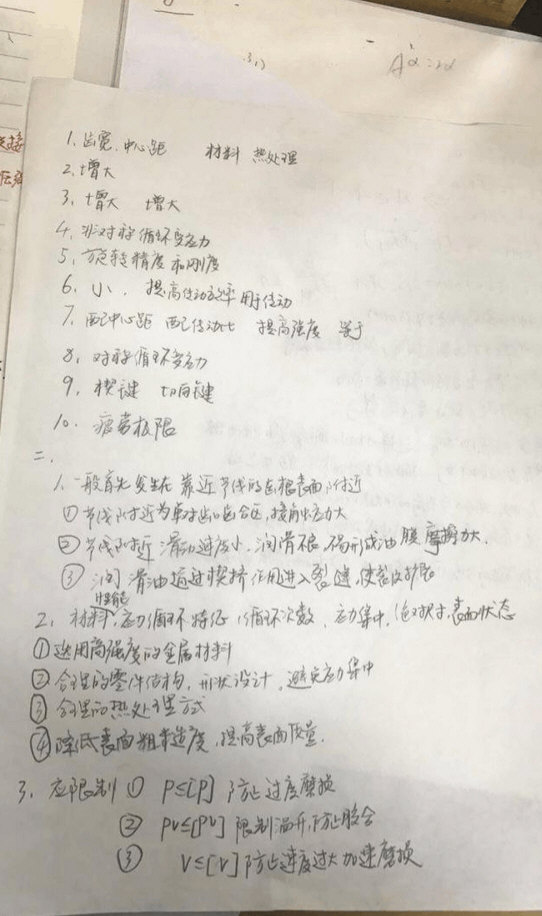 3,)
1. 齿宽、中心距 材料 热处理
2. 增大
3, 增大 增大
4, 非对称循环变应力
5, 旋转精度和刚度
6, 小. 提高传动效率 用于传动
7, 配中心距 配传动比 提高强度 等于
8, 对称循环变应力
9, 楔键 切向键
10. 疲劳极限
二.
1. 一般首先发生在靠近节线的齿根表面附近
① 节线附近为单对齿啮合区,接触应力大
② 节线附近滑动速度小,润滑不良,不易形成油膜 摩擦力大.
③ 润滑油通过楔挤作用进入裂缝,使裂纹扩散
性能
2, 材料,应力循环特征,循环次数、应力集中,绝对尺寸,表面状态
① 选用高强度的金属材料
② 合理的零件结构,形状设计,避免应力集中
③ 合理的热处理方式
④ 降低表面粗糙度,提高表面质量.
3, 应限制 ① P≤[P] 防止过度磨损
② PV≤[PV] 限制温升,防止胶合
③ V≤[V] 防止速度过大加速磨损